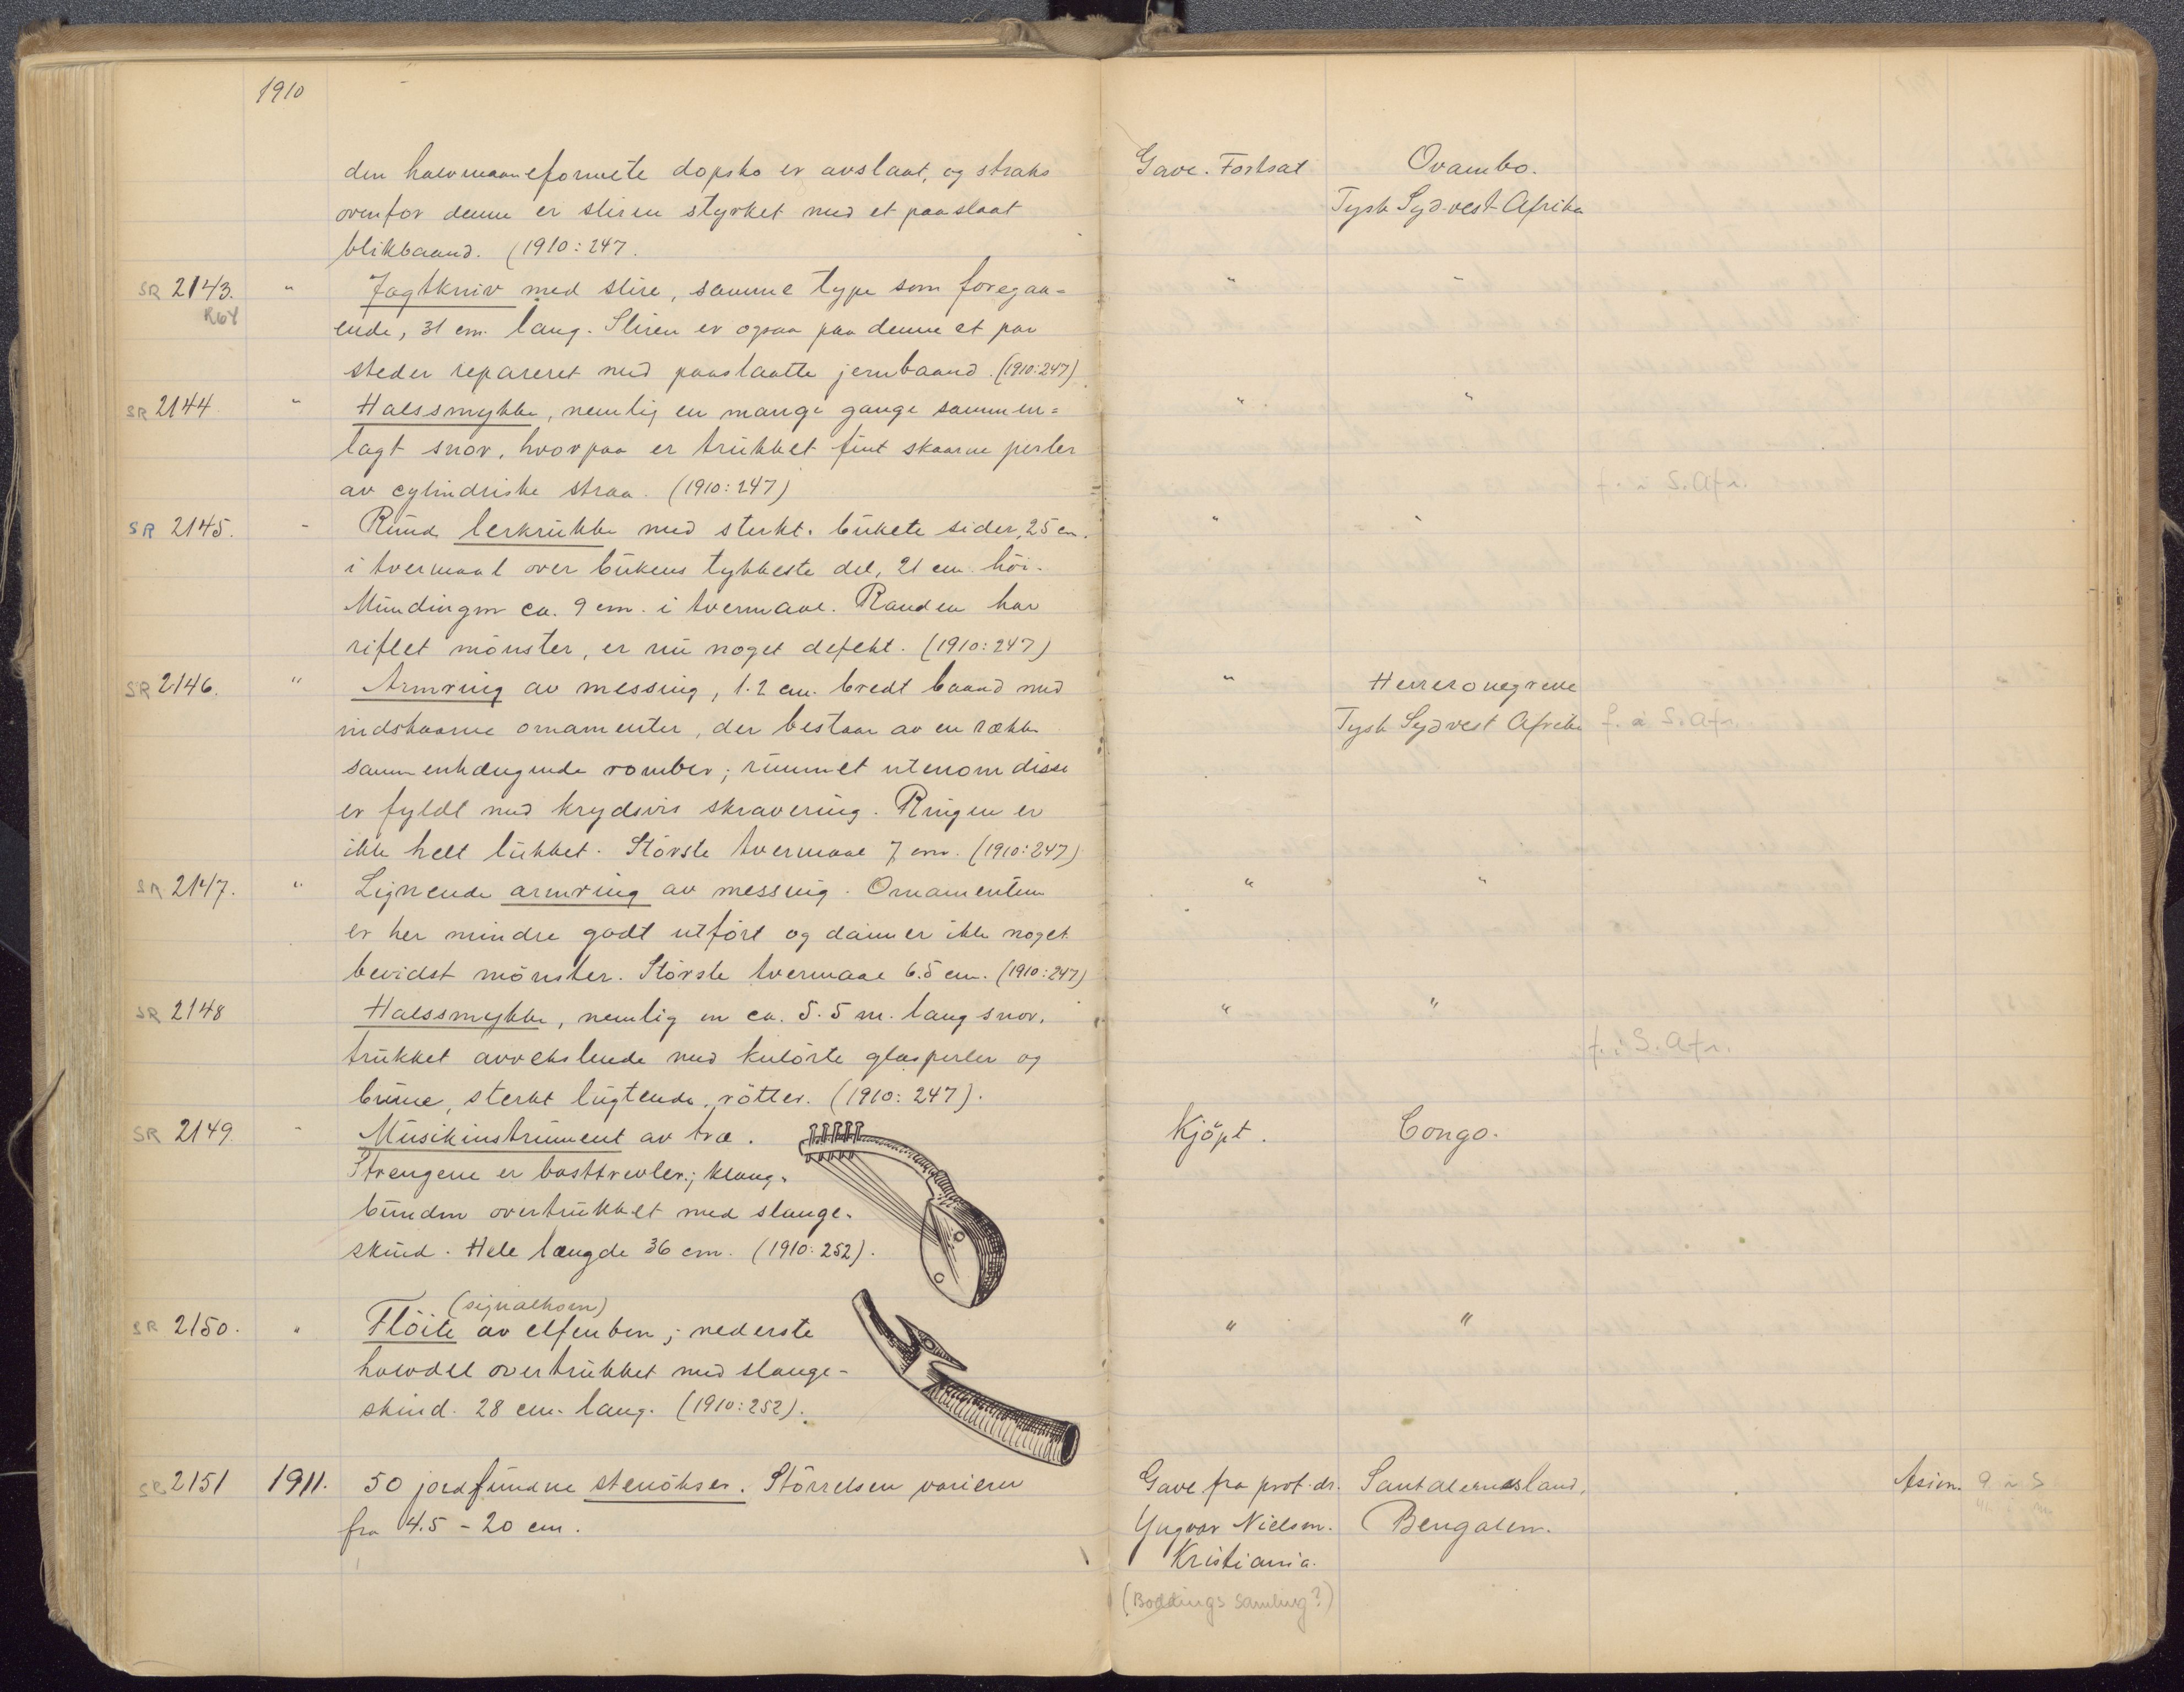 1910
den halvmaaneformete dopsko er avslaat, og straks
ovenfor denne er sliren styrket med et paaslaat
blikbaand. (1910:247.
Gave. Fortsat
Ovambo.
Tysk Syd-vest-Afrika
SR 2143. " Jagtkniv med slire, samme type som foregaa=
R64
ende, 31 cm. lang. Sliren er ogsaa paa denne et par
steder repareret med paaslaatte jernbaand. (1910:247)
" "
SR 2144 " Halssmykke, nemlig en mange gange sammen=
lagt snor, hvorpaa er trukket fint skaarne perler
av cylindriske straa. (1910:247)
" "
f. i S. Afr.
SR 2145. " Rund lerkrukke med sterkt bukete sider, 25 cm.
i tvermaal over bukens tykkeste del, 21 cm. höi.
Mundingen ca. 9 cm. i tvermaal. Randen har
riflet mönster, er nu noget defekt. (1910:247)
" "
SR 2146. " Armring av messing, 1.2 cm. bredt baand med
indskaarne ornamenter, der bestaar av en række
sammenhængende romber; rummet utenom disse
er fyldt med krydsvis skravering. Ringen er
ikke helt lukket. Störste tvermaal 7 cm. (1910:247)
" Hereronegrene
Tysk Sydvest Afrika f. i S. Afr.
SR 2147. " Lignende armring av messing. Ornamenten
er her mindre godt utfört og danner ikke noget
bevidst mönster. Störste tvermaal 6.5 cm. (1910:247)
" "
SR 2148 Halssmykke, nemlig en ca. 5.5 m. lang snor,
trukket avvekslende med kulörte glasperler og
brune, sterkt lugtende, rötter. (1910:247).
" "
f. i S. Afr.
SR 2149. " Musikinstrument av træ.
Strengene er basttrevler; klang-
bunden overtrukket med slange-
skind. Hele længde 36 cm. (1910:252).
Kjöpt. Congo.
(signalhorn)
SR 2150. " Flöite av elfenben; nederste
halvdel overtrukket med slange-
skind. 28 cm. lang. (1910:252).
" "
SR 2151 1911. 50 jordfundne stenökser. Störrelsen varierer
fra 4.5 - 20 cm.
Gave fra prof. dr. Santalernesland, Asien.
Yngvar Nielsen. Bengalen.
Kristiania.
(Boddings samling?)